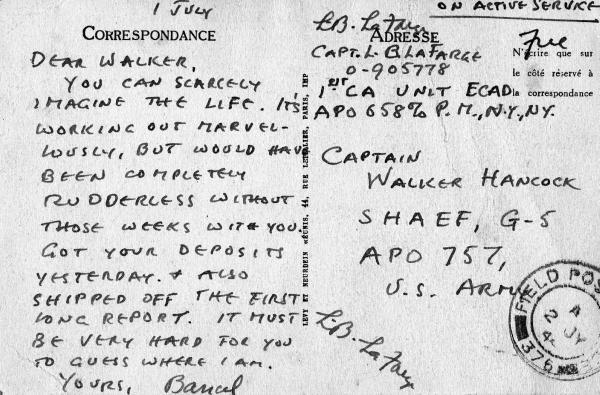 1 JULY
CORRESPONDANCE
DEAR WALKER,
YOU CAN SCARCELY
IMAGINE THE LIFE. IT'S
WORKING OUT MARVEL-
LOUSLY, BUT WOULD HAVE
BEEN COMPLETELY
RUDDERLESS WITHOUT
THOSE WEEKS WITH YOU.
GOT YOUR DEPOSITS
YESTERDAY. & ALSO
SHIPPED OFF THE FIRST
LONG REPORT. IT MUST
BE VERY HARD FOR YOU
TO GUESS WHERE I AM.
YOURS, Bancel
LEVY ET NEURDEIN RÉUNIS, 44, RUE LETELLIER, PARIS, IMP
ON ACTIVE SERVICE
L.B. LaFarge
ADRESSE
Free
N'écrire que sur
le côté réservé à
la correspondance
CAPT. L B LAFARGE
0-905778
1ST CA UNIT ECAD
APO 658 % P.M., N.Y., N.Y.
CAPTAIN
WALKER HANCOCK
SHAEF, G-5
APO 757,
U.S. ARMY
L.B. LaFarge
FIELD POST
2 JY
376